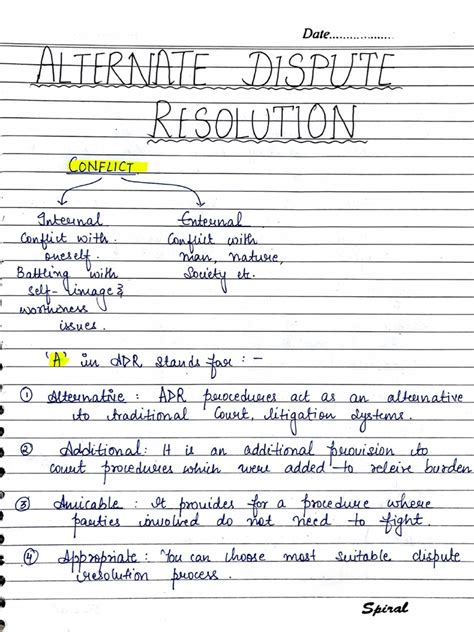 Date....................
ALTERNATE DISPUTE
RESOLUTION
CONFLICT
Internal
Conflict with
oneself.
Battling with
self-image &
worthiness
issues.
External
Conflict with
man, nature,
Society etc.
'A' in ADR stands for : -
① Alternative : ADR procedures act as an alternative
to traditional Court, litigation systems.
② Additional : It is an additional provision to
court procedures which were added to releive burden
③ Amicable : It provides for a procedure where
parties involved do not need to fight.
④ Appropriate : You can choose most suitable dispute
resolution process.
Spiral